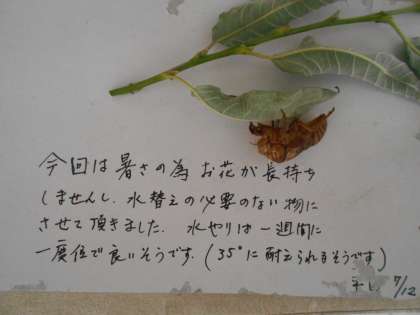 今回は暑さの為 お花が長持ち
しませんし、水替えの必要のない物に
させて頂きました. 水やりは一週間に
一度位で良いそうです.(35°に耐えられるそうです)
7/12